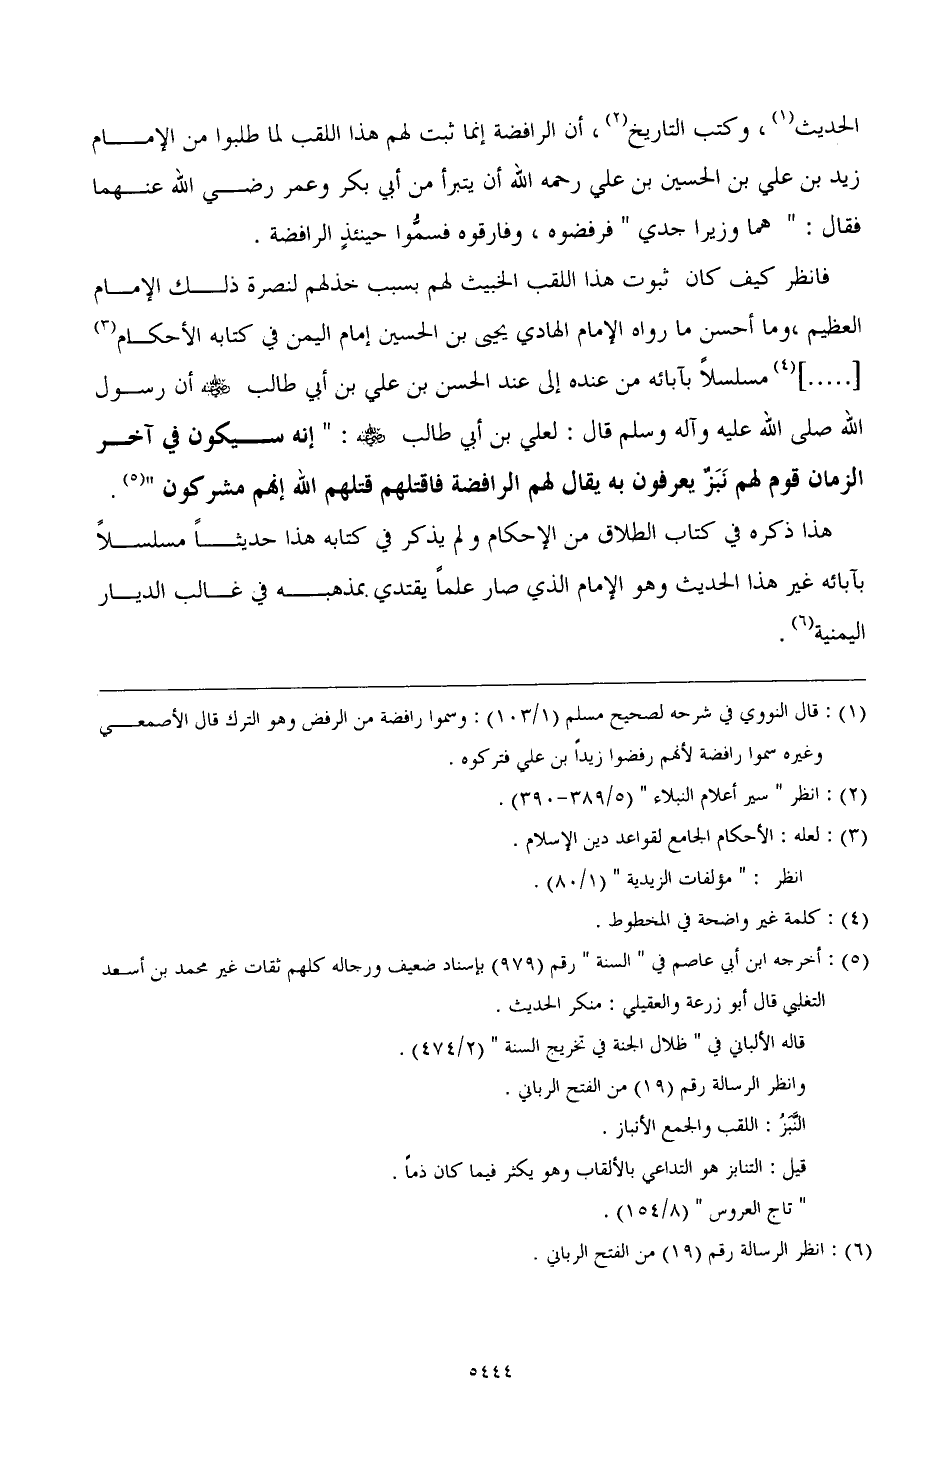 الحديث(١) ، وكتب التاريخ(٢) ، أن الرافضة إنما ثبت لهم هذا اللقب لما طلبوا من الإمـــــام
زيد بن علي بن الحسين بن علي رحمه الله أن يتبرأ من أبي بكر وعمر رضـــي الله عنـــهما
فقال : " هما وزيرا جدي " فرفضوه ، وفارقوه فسمُّوا حينئذٍ الرافضة .
فانظر كيف كان ثبوت هذا اللقب الخبيث لهم بسبب خذلهم لنصرة ذلـــك الإمـــام
العظيم ،وما أحسن ما رواه الإمام الهادي يحيى بن الحسين إمام اليمن في كتابه الأحكـام(٣)
[.....](٤) مسلسلاً بآبائه من عنده إلى عند الحسن بن علي بن أبي طالب ﷺ أن رســول
الله صلى الله عليه وآله وسلم قال : لعلي بن أبي طالب ﷺ : " إنه ســـيكون في آخـــر
الزمان قوم لهم نَبَزٌ يعرفون به يقال لهم الرافضة فاقتلهم قتلهم الله إنهم مشركون "(٥) .
هذا ذكره في كتاب الطلاق من الإحكام و لم يذكر في كتابه هذا حديثـــاً مسلســـلاً
بآبائه غير هذا الحديث وهو الإمام الذي صار علماً يقتدي بمذهبـــــه في غـــالب الديـــار
اليمنية(٦) .
(١) : قال النووي في شرحه لصحيح مسلم (١٠٣/١) : وسموا رافضة من الرفض وهو الترك قال الأصمعـــي
وغيره سموا رافضة لأنهم رفضوا زيداً بن علي فتركوه .
(٢) : انظر " سير أعلام النبلاء " (٣٨٩/٥-٣٩٠) .
(٣) : لعله : الأحكام الجامع لقواعد دين الإسلام .
انظر : " مؤلفات الزيدية " (٨٠/١) .
(٤) : كلمة غير واضحة في المخطوط .
(٥) : أخرجه ابن أبي عاصم في " السنة " رقم (٩٧٩) بإسناد ضعيف ورجاله كلهم ثقات غير محمد بن أسـعد
التغلبي قال أبو زرعة والعقيلي : منكر الحديث .
قاله الألباني في " ظلال الجنة في تخريج السنة " (٤٧٤/٢) .
وانظر الرسالة رقم (١٩) من الفتح الرباني .
النَّبَزُ : اللقب والجمع الأنباز .
قيل : التنابز هو التداعي بالألقاب وهو يكثر فيما كان ذماً .
" تاج العروس " (١٥٤/٨) .
(٦) : انظر الرسالة رقم (١٩) من الفتح الرباني .
٥٤٤٤